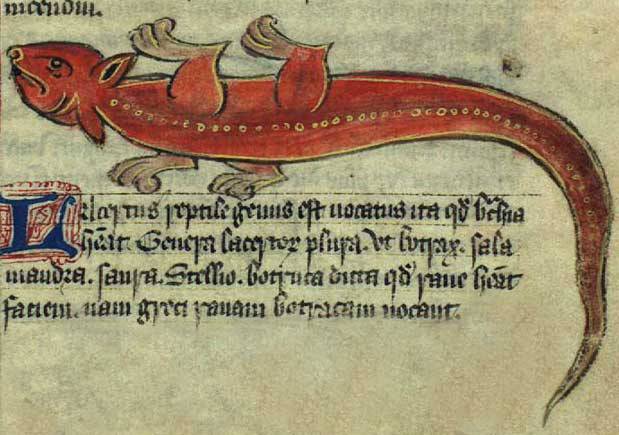 incendiu.
Lacertus reptile genus est uocatus ita qd bchia
heat. Genera lacertor plura. ut botrax. sala
mandra. saura. Stellio. botruca dicta qd rane heat
faciem. nam greci ranam botracam uocant.